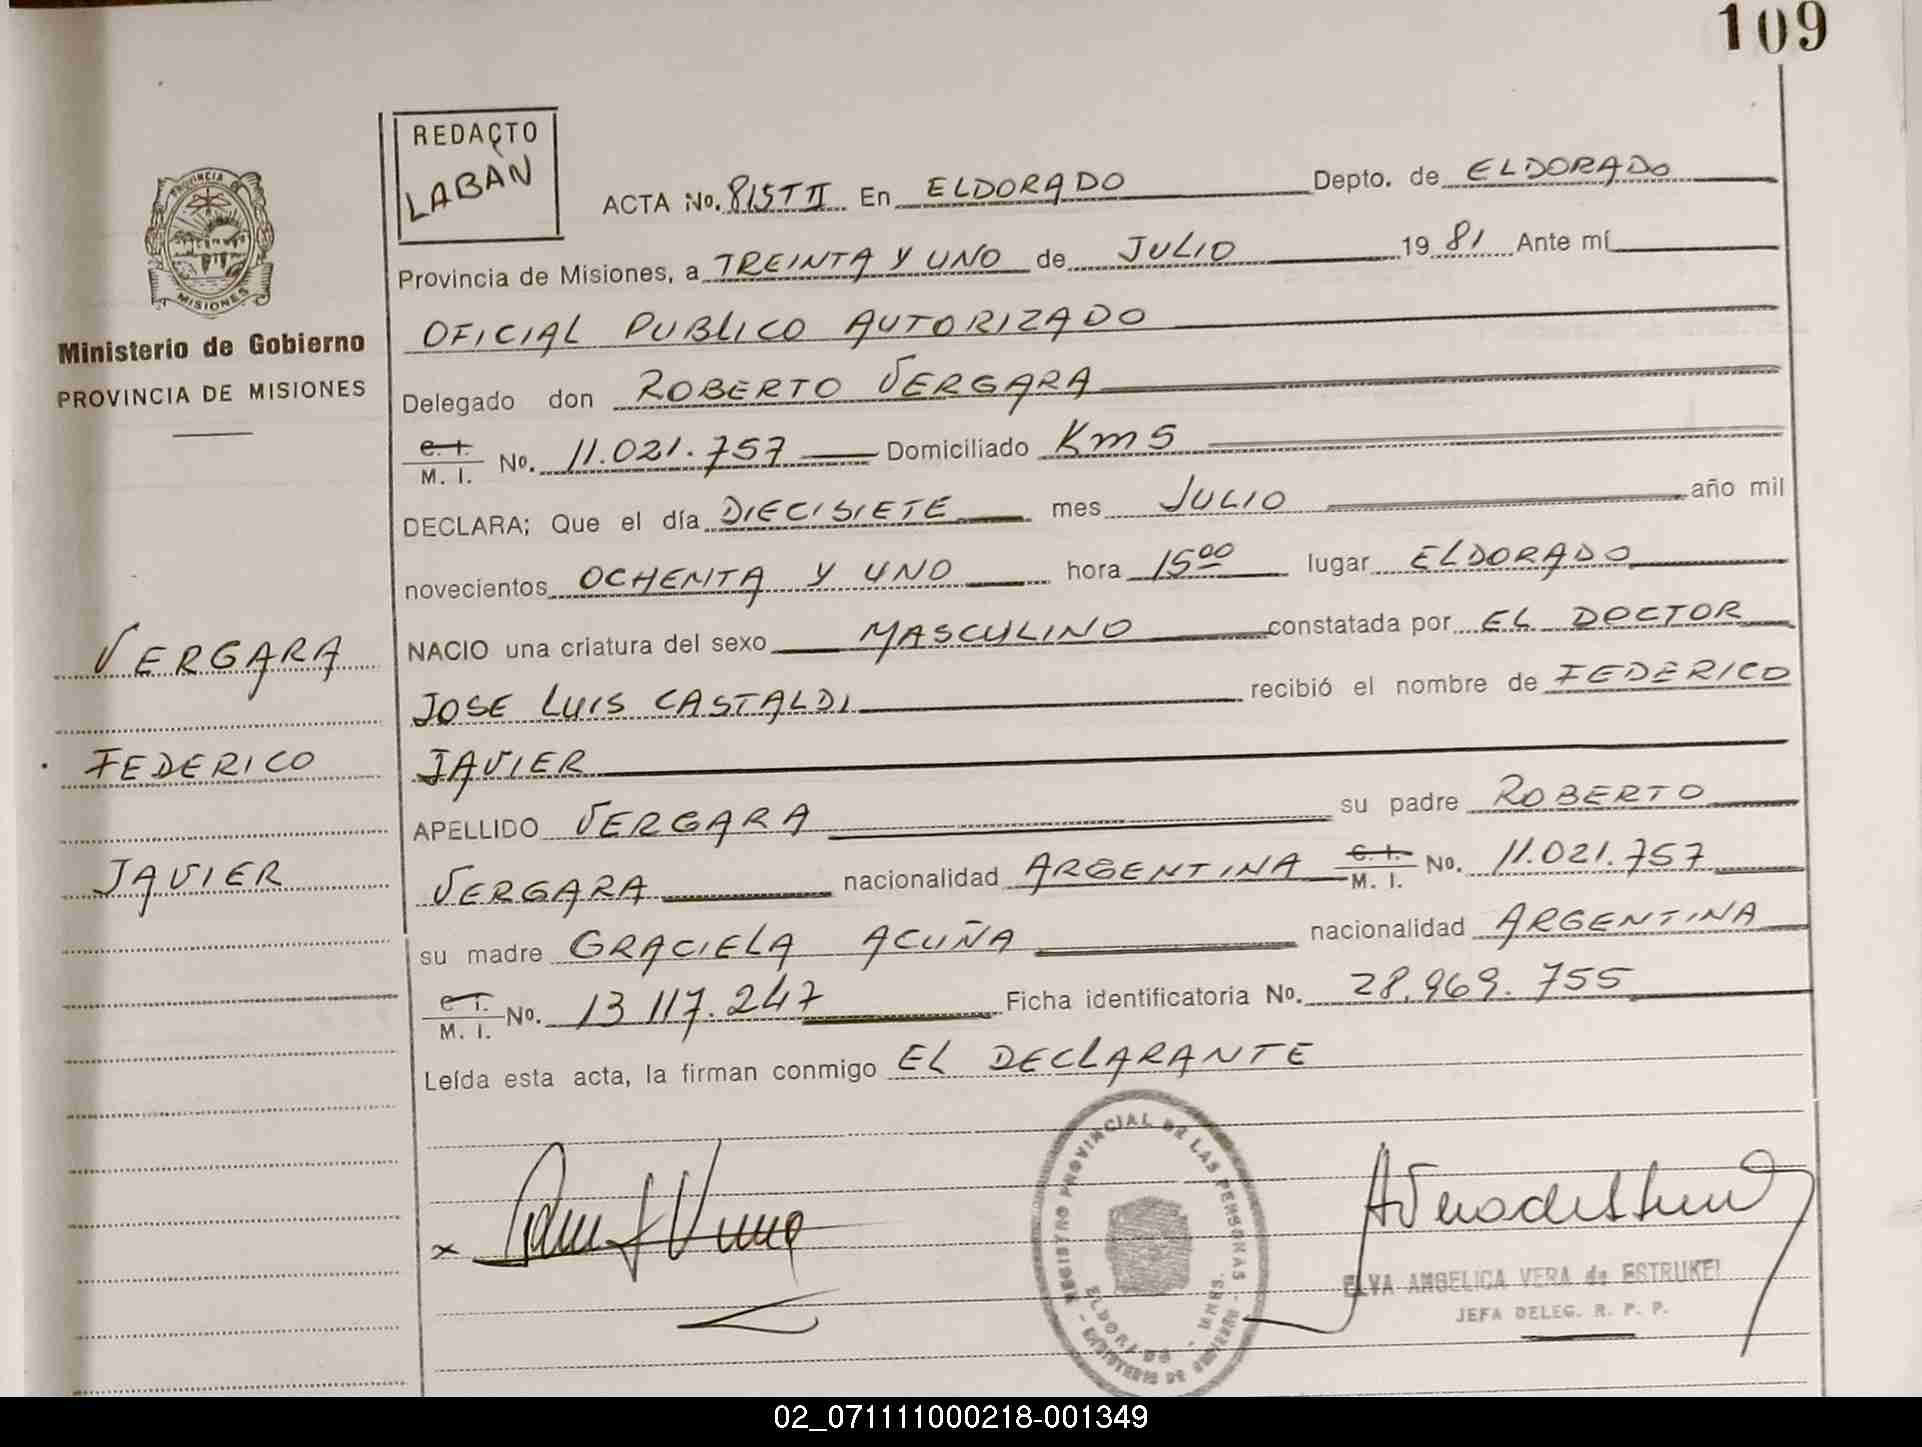 109
REDACTO
LABAN
PROVINCIA DE
MISIONES
Ministerio de Gobierno
PROVINCIA DE MISIONES
VERGARA
FEDERICO
JAVIER
ACTA No. 815 T II En ELDORADO Depto. de ELDORADO
Provincia de Misiones, a TREINTA Y UNO de JULIO 1981 Ante mí
OFICIAL PUBLICO AUTORIZADO
Delegado don ROBERTO VERGARA
C. I. / M. I. No. 11.021.757 Domiciliado Km 5
DECLARA; Que el día DIECISIETE mes JULIO año mil
novecientos OCHENTA Y UNO hora 15 00 lugar ELDORADO
NACIO una criatura del sexo MASCULINO constatada por EL DOCTOR
JOSE LUIS CASTALDI recibió el nombre de FEDERICO
JAVIER
APELLIDO VERGARA su padre ROBERTO
VERGARA nacionalidad ARGENTINA C. I. / M. I. No. 11.021.757
su madre GRACIELA ACUÑA nacionalidad ARGENTINA
C. I. / M. I. No. 13 117.247 Ficha identificatoria No. 28.969.755
Leída esta acta, la firman conmigo EL DECLARANTE
REGISTRO PROVINCIAL DE LAS PERSONAS - MINISTERIO DE GOBIERNO -
ELDORADO - MNES.
ELVA ANGELICA VERA de ESTRUKEL
JEFA DELEG. R. P. P.
02_071111000218-001349